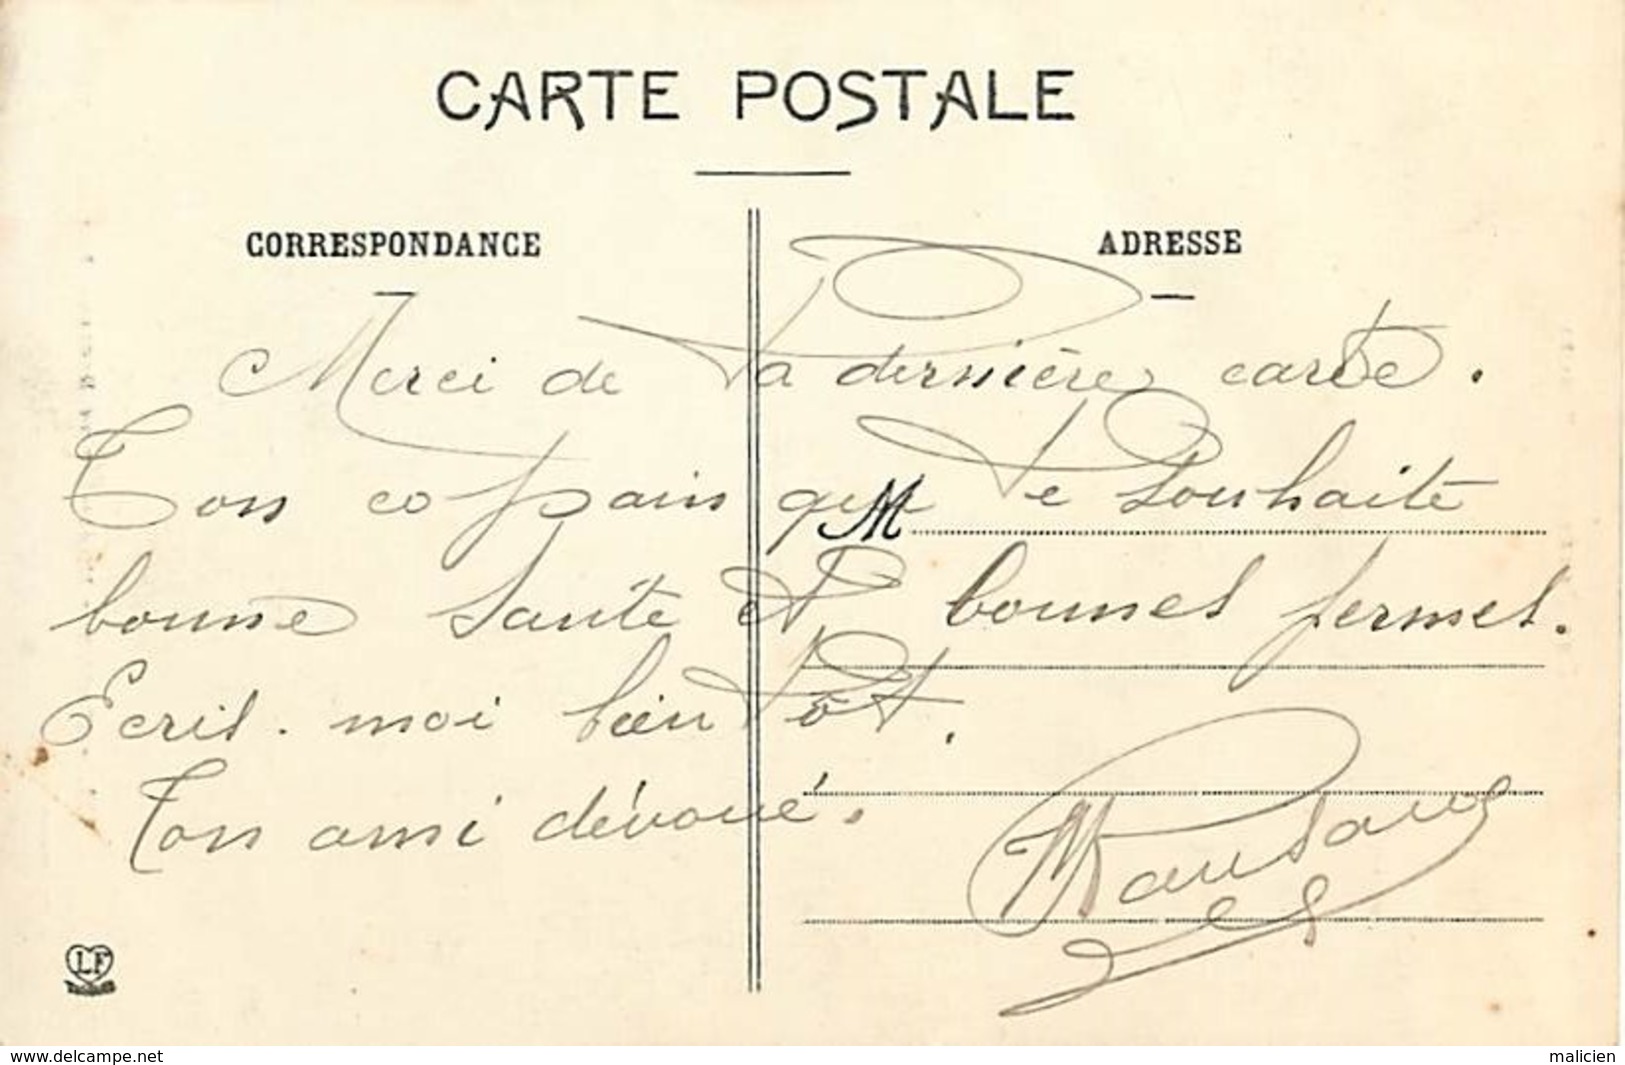 CARTE POSTALE
CORRESPONDANCE
ADRESSE
Merci de ta dernière carte.
Ton copain qui te souhaite
M
bonne santé et bonnes fermes.
Ecris-moi bientôt.
Ton ami dévoué.
LF
www.delcampe.net
malicien